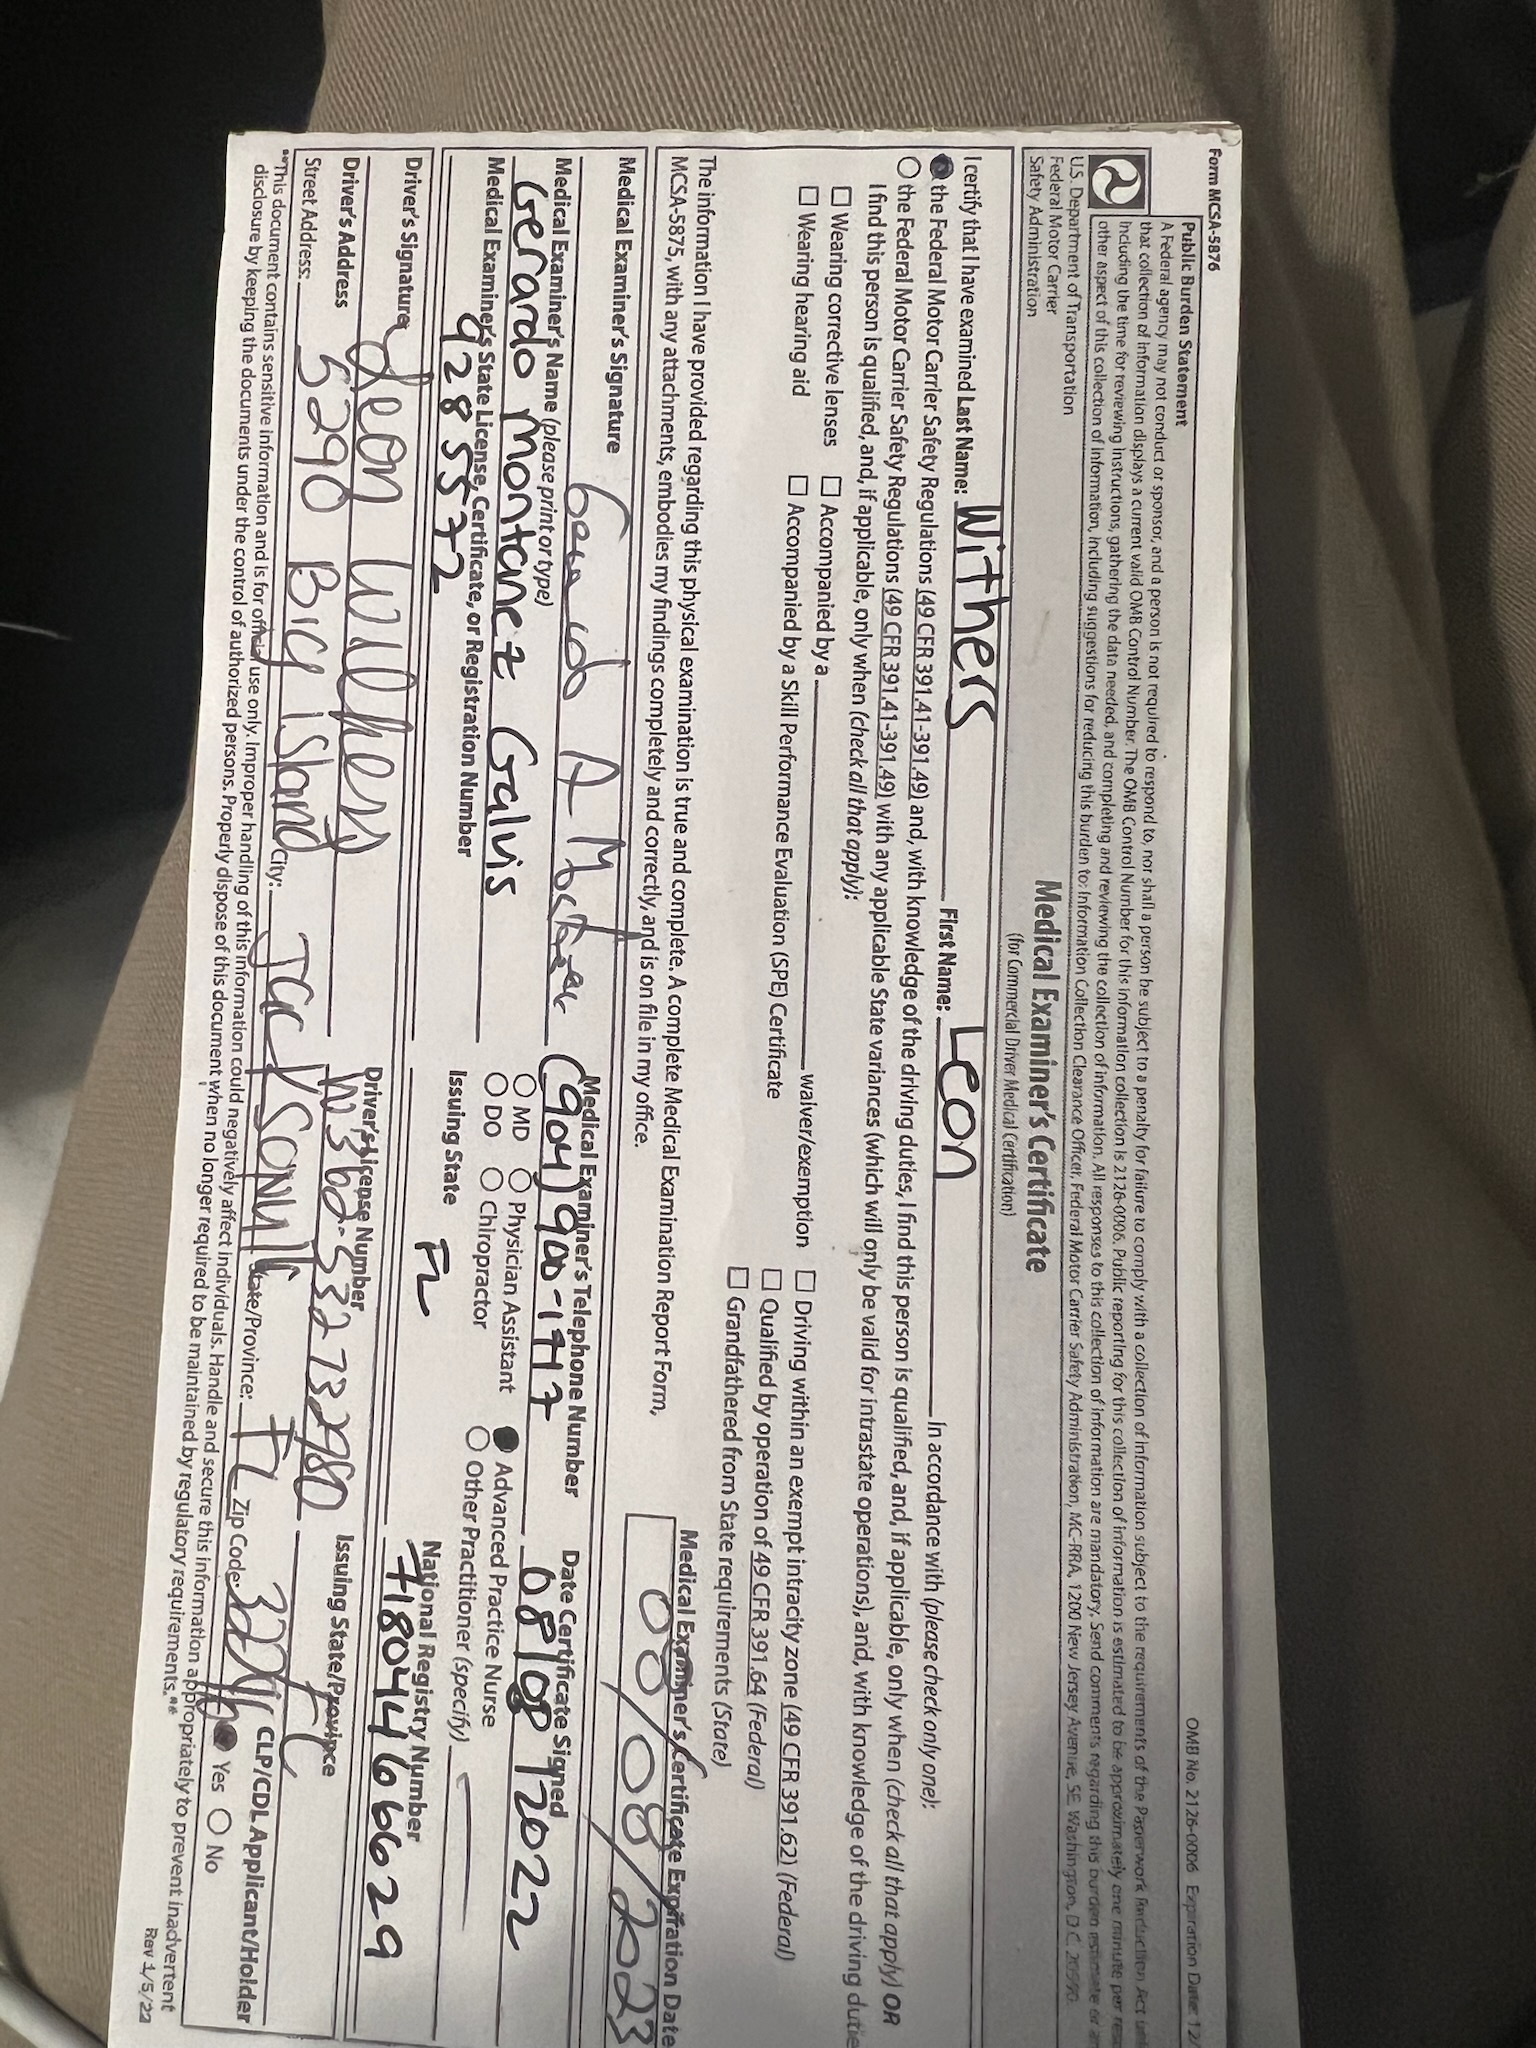 Form MCSA-5876 OMB No. 2126-0006 Expiration Date: 12/
Public Burden Statement
A Federal agency may not conduct or sponsor, and a person is not required to respond to, nor shall a person be subject to a penalty for failure to comply with a collection of information subject to the requirements of the Paperwork Reduction Act
that collection of information displays a current valid OMB Control Number. The OMB Control Number for this information collection is 2126-0006. Public reporting for this collection of information is estimated to be approximately one minute per
including the time for reviewing instructions, gathering the data needed, and completing and reviewing the collection of information. All responses to this collection of information are mandatory. Send comments regarding this burden estimate or
other aspect of this collection of information, including suggestions for reducing this burden to: Information Collection Clearance Officer, Federal Motor Carrier Safety Administration, MC-RRA, 1200 New Jersey Avenue, SE, Washington, D.C. 20590.
U.S. Department of Transportation
Federal Motor Carrier
Safety Administration
Medical Examiner's Certificate
(for Commercial Driver Medical Certification)
I certify that I have examined Last Name: Withers First Name: Leon in accordance with (please check only one):
the Federal Motor Carrier Safety Regulations (49 CFR 391.41-391.49) and, with knowledge of the driving duties, I find this person is qualified, and, if applicable, only when (check all that apply) OR
the Federal Motor Carrier Safety Regulations (49 CFR 391.41-391.49) with any applicable State variances (which will only be valid for intrastate operations), and, with knowledge of the driving dutie
I find this person is qualified, and, if applicable, only when (check all that apply):
Wearing corrective lenses Accompanied by a waiver/exemption Driving within an exempt intracity zone (49 CFR 391.62) (Federal)
Wearing hearing aid Accompanied by a Skill Performance Evaluation (SPE) Certificate Qualified by operation of 49 CFR 391.64 (Federal)
Grandfathered from State requirements (State)
The information I have provided regarding this physical examination is true and complete. A complete Medical Examination Report Form,
MCSA-5875, with any attachments, embodies my findings completely and correctly, and is on file in my office.
Medical Examiner's Certificate Expiration Date
08/08/2023
Medical Examiner's Signature Medical Examiner's Telephone Number Date Certificate Signed
(904) 900-1417 08/08/2022
Medical Examiner's Name (please print or type)
Gerardo Montanez Galvis
MD Physician Assistant Advanced Practice Nurse
DO Chiropractor Other Practitioner (specify)
Medical Examiner's State License, Certificate, or Registration Number Issuing State National Registry Number
9285572 FL 7180446629
Driver's Signature Driver's License Number Issuing State/Province
Leon Withers FL
Driver's Address CLP/CDL Applicant/Holder
Street Address: 5290 Big Island City: Jacksonville State/Province: FL Zip Code: Yes No
**This document contains sensitive information and is for official use only. Improper handling of this information could negatively affect individuals. Handle and secure this information appropriately to prevent inadvertent
disclosure by keeping the documents under the control of authorized persons. Properly dispose of this document when no longer required to be maintained by regulatory requirements.**
Rev 1/5/22